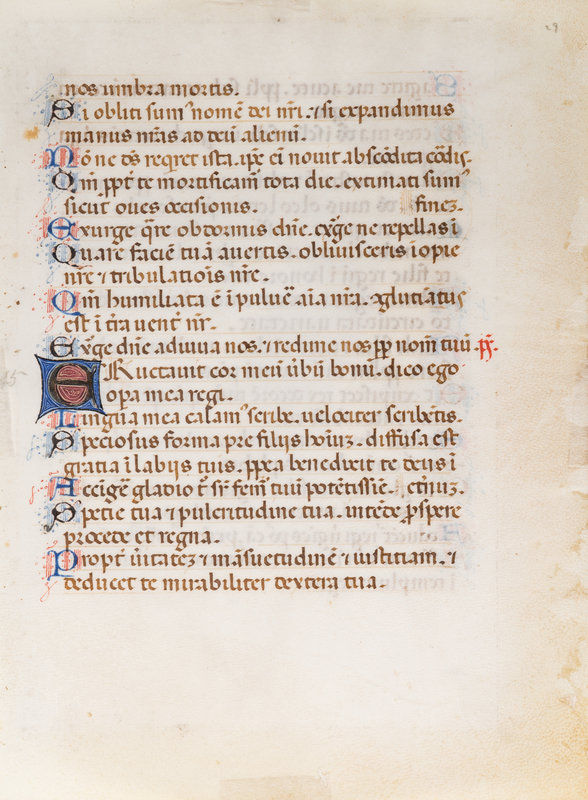 29
nos umbra mortis.
Si obliti sumꝰ nomē dei nr̄i. ⁊ si expandimus
manus nr̄as ad deū alienū.
Nō ne ds̄ reqͥret ista. ip̄e eī novit abscōdita cōdis.
Qm̄ ꝓpt̄ te mortificamꝰ tota die. extimati sumꝰ
sicut oues occisionis. finez.
Exurge qͣre obdormis dn̄e. exꝰge ne repellas ī
Quare faciē tuā auertis. obliuisceris īopie
nr̄e ⁊ tribulatiōis nr̄e.
Qm̄ humiliata ē ī puluē aīa nr̄a. ↄglutiātus
est ī tr̄a uent̄ nr̄.
Exꝰge dn̄e adiuua nos. ⁊ redime nos ꝓp nom̄ tuū. pſ̄.
ERuctauit cor meū ūbū bonū. dico ego
opa mea regi.
Lingua mea calamꝰ scribe. uelociter scribētis.
Speciosus forma pre filijs hoīuz. diffusa est
gratia ī labijs tuis. ꝓpea benedixit te deus ī
Accīgē gladio t̄ sr̄ femꝰ tuū potētissīe. et̄nuz.
Spetie tua ⁊ pulcritudine tua. intēde ꝓspere
procede et regna.
Propt̄ ūitatez ⁊ māsuetudinē ⁊ iustitiam. ⁊
deducet te mirabiliter dextera tua.